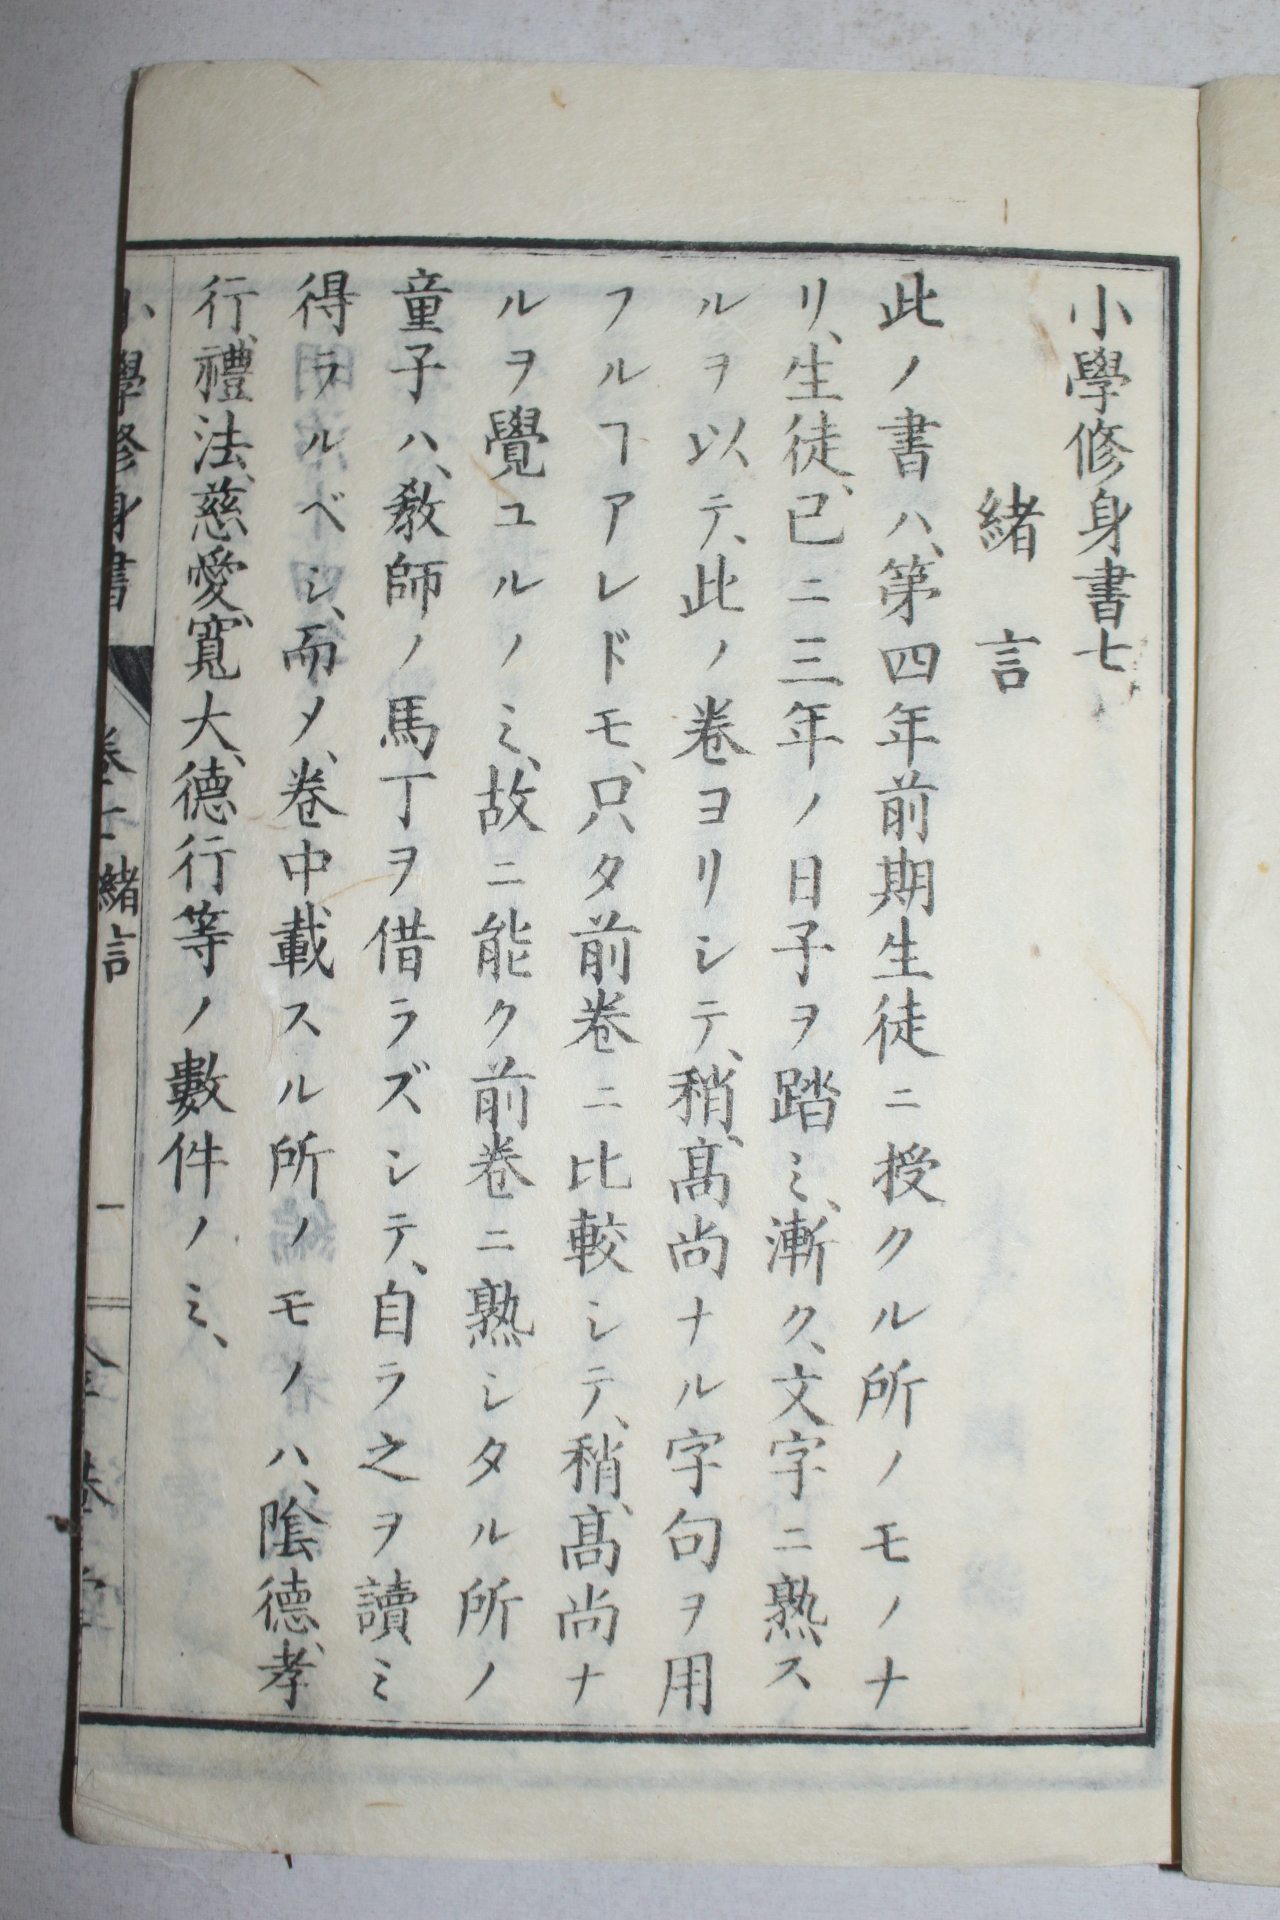 小學修身書七
緒言
此ノ書ハ、第四年前期生徒ニ授クル所ノモノナ
リ、生徒、已ニ三年ノ日子ヲ踏ミ、漸ク、文字ニ熟ス
ルヲ以テ、此ノ卷ヨリシテ、稍、髙尚ナル字句ヲ用
フルヿアレドモ、只タ前卷ニ比較シテ、稍、髙尚ナ
ルヲ覺ユルノミ、故ニ能ク前卷ニ熟シタル所ノ
童子ハ、敎師ノ馬丁ヲ借ラズシテ、自ラ之ヲ讀ミ
得ラルベシ、而メ、卷中載スル所ノモノハ、陰德、孝
行、禮法、慈愛、寬大、德行等ノ數件ノミ、
小學修身書
緒言
一